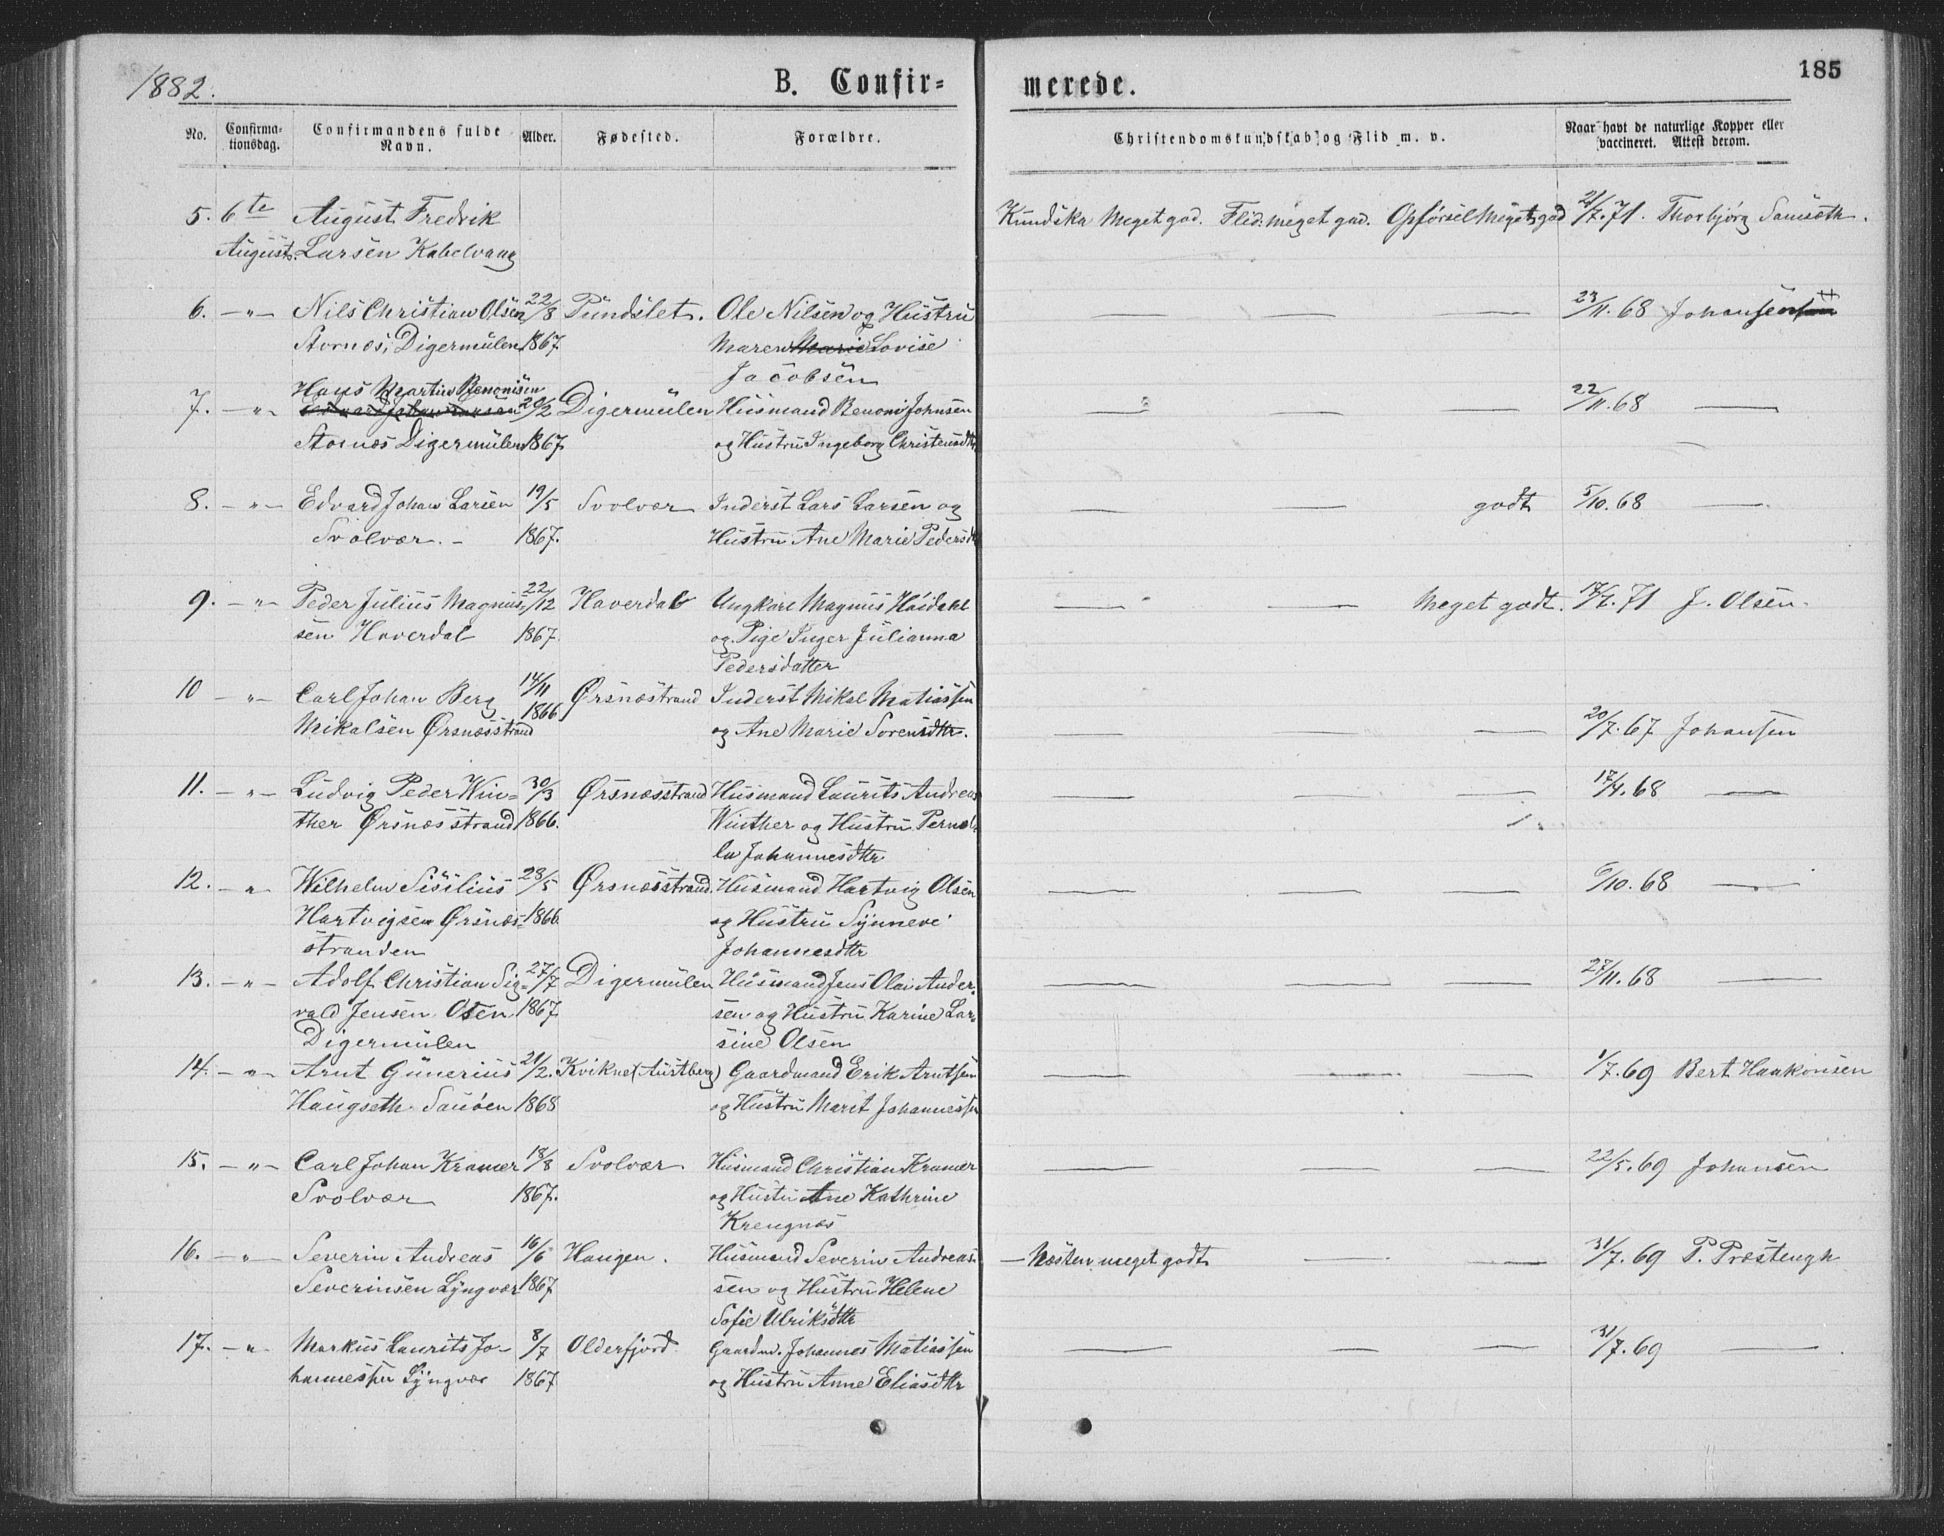 1882.
B. Confir=
merede.
185
No.
Confirma-
tionsdag.
Confirmandens fulde
Navn.
Alder.
Fødested.
Forældre.
Christendomskundskab og Flid m. v.
Naar havt de naturlige Kopper eller
vaccineret. Attest derom.
5. 6te August Fredrik Kundska Meget god. Flid meget god. Opførsel Meget god 21/7.71. Thorbjørg
August. Larsen Kabelvaag
6. — „ — Nils Christian Olsen 22/8 Pundslet. Ole Nilsen og Hustru — — — 23/11.68 Johansen
Stornæs, Digermulen 1867 Maren Marie Lovise
Jacobsen
Hans Martin Benonisen
7. — „ — 20/2 Digermulen Husmand Benoni Johnsen — — — 22/11.68 —
Stornæs Digermulen 1867. og Hustru Ingeborg Christensdtr
8. — „ — Edvard Johan Larsen 19/5 Svolvær Inderst Lars Larsen og — — godt 5/10.68 —
Svolvær. — 1867. Hustru Ane Marie Pedersdtr
9. — „ — Peder Julius Magnus- 22/12 Haverdal Ungkarl Magnus Haidahl — — Meget godt. 17/7.71 J. Olsen.
sen Haverdal 1867. og Pige Inger Julianna
Pedersdatter
10 — „ — Carl Johan Berg 14/11 Ørsnæstrand Inderst Mikal Matiassen
Mikalsen Ørsnæsstrand 1866 og Ane Marie Sorensdtr. — — — 20/7.67 Johansen
11. — „ — Ludvig Peder Win= 30/3 Ørsnæsstrand Husmand Laurits Andreas — — — 17/4.68 —
ther Ørsnæsstrand 1866. Winther og Hustru Pernel-
la Johannesdtr
12. — „ Wilhelm Sisilius 28/5 Ørsnæsstrand. Husmand Hartvig Olsen — — — 6/10.68 —
Hartvigsen Ørsnæs= 1866 og Hustru Synneve
stranden Johannesdtr
13. — „ — Adolf Christian Sig= 27/7 Digermulen Husmand Jens Olai Ander- — — — 27/11.68 —
vald Jensen Osen 1867 sen og Hustru Karine Lar=
Digermulen sine Olsen
14. — „ — Arnt Gunerius 21/2. Kvikne (Austberg) Gaardmand Erik Arntsen — — — 1/7.69 Bert Haakonsen
Haugseth 1868 og Hustru Marit Johannessen
15. — „ — Carl Johan Kramer 18/8 Svolvær Husmand Christian Kramer — — — 22/5.69 Johansen
Svolvær 1867. og Hustru Ane Kathrine
Krengnæs
16. — „ — Severin Andreas 16/6 Haugen. Husmand Severin Andreas- — Næsten meget godt — — 31/7.69 P. Præstengh
Severinsen Lyngvær 1867 sen og Hustru Helene
Sofie Ulriksdtr
17. — „ — Markus Laurits Jo- 8/7 Olderfjord Gaardm. Johannes Matiassen — — — 31/7.69 —
hannessen Lyngvær 1867 og Hustru Anne Eliasdtr